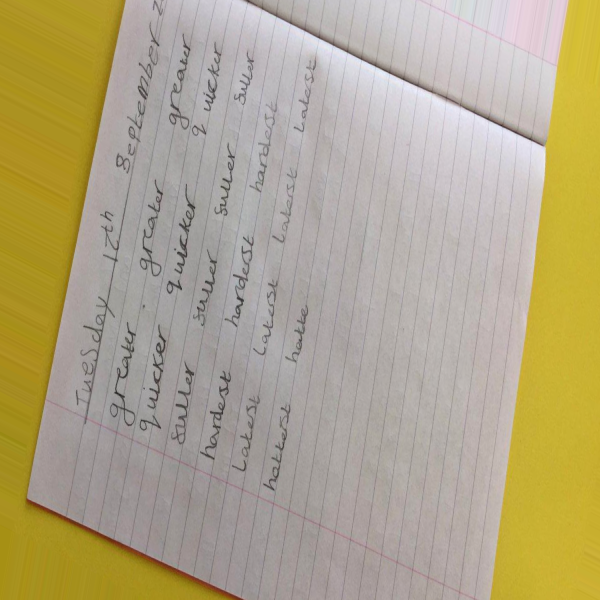 Tuesday 12th September 2
greater. greater greater
quicker quicker quicker
suller suller suller suller
hardest harderst harderst
Laterst Laterst Laterst Latest
hatterst hatte